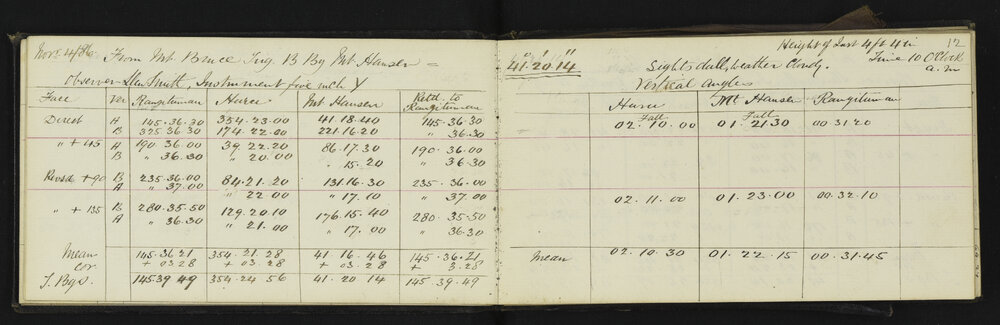 Novr 4/86 From Mt. Bruce Trig. B Bg Mt Hansen =
41° 20' 14"
Height of Inst 4 ft 4 in 12
Sights dull, weather Cloudy.
Time 10 O'Clock a.m
Observer Smith, Instrument five inch Y
Vertical Angles
Face Ver Rangitumau Hurei Mt Hansen Retd. to Rangitumau
Hurei Mt Hansen Rangitumau
Direct A 145.36.30 354.23.00 41 18.40 145.36.30
B 325 36.30 174.22.00 221.16.20 " 36.30
Fall Fall
02.10.00 01.21.30 00.31.20
" + 45 A 190 36.00 39.22.20 86.17.30 190.36.00
B " 36.30 " 20.00 " 15.20 " 36.30
Revsd +90 B 235.36.00 84.21.20 131.16.30 235.36.00
A " 37.00 " 22.00 " 17.10 " 37.00
02.11.00 01.23.00 00.32.10
" + 135 B 280.35.50 129.20.10 176.15.40 280.35.50
A " 36.30 " 21.00 " 17.00 " 36.30
Mean 145.36 21 354.21.28 41 16.46 145.36.21
Mean 02.10.30 01.22.15 00.31.45
cor. + 03.28 + 03.28 + 03.28 + 3.28
T. Bgs. 145 39 49 354.24 56 41.20 14 145 39.49